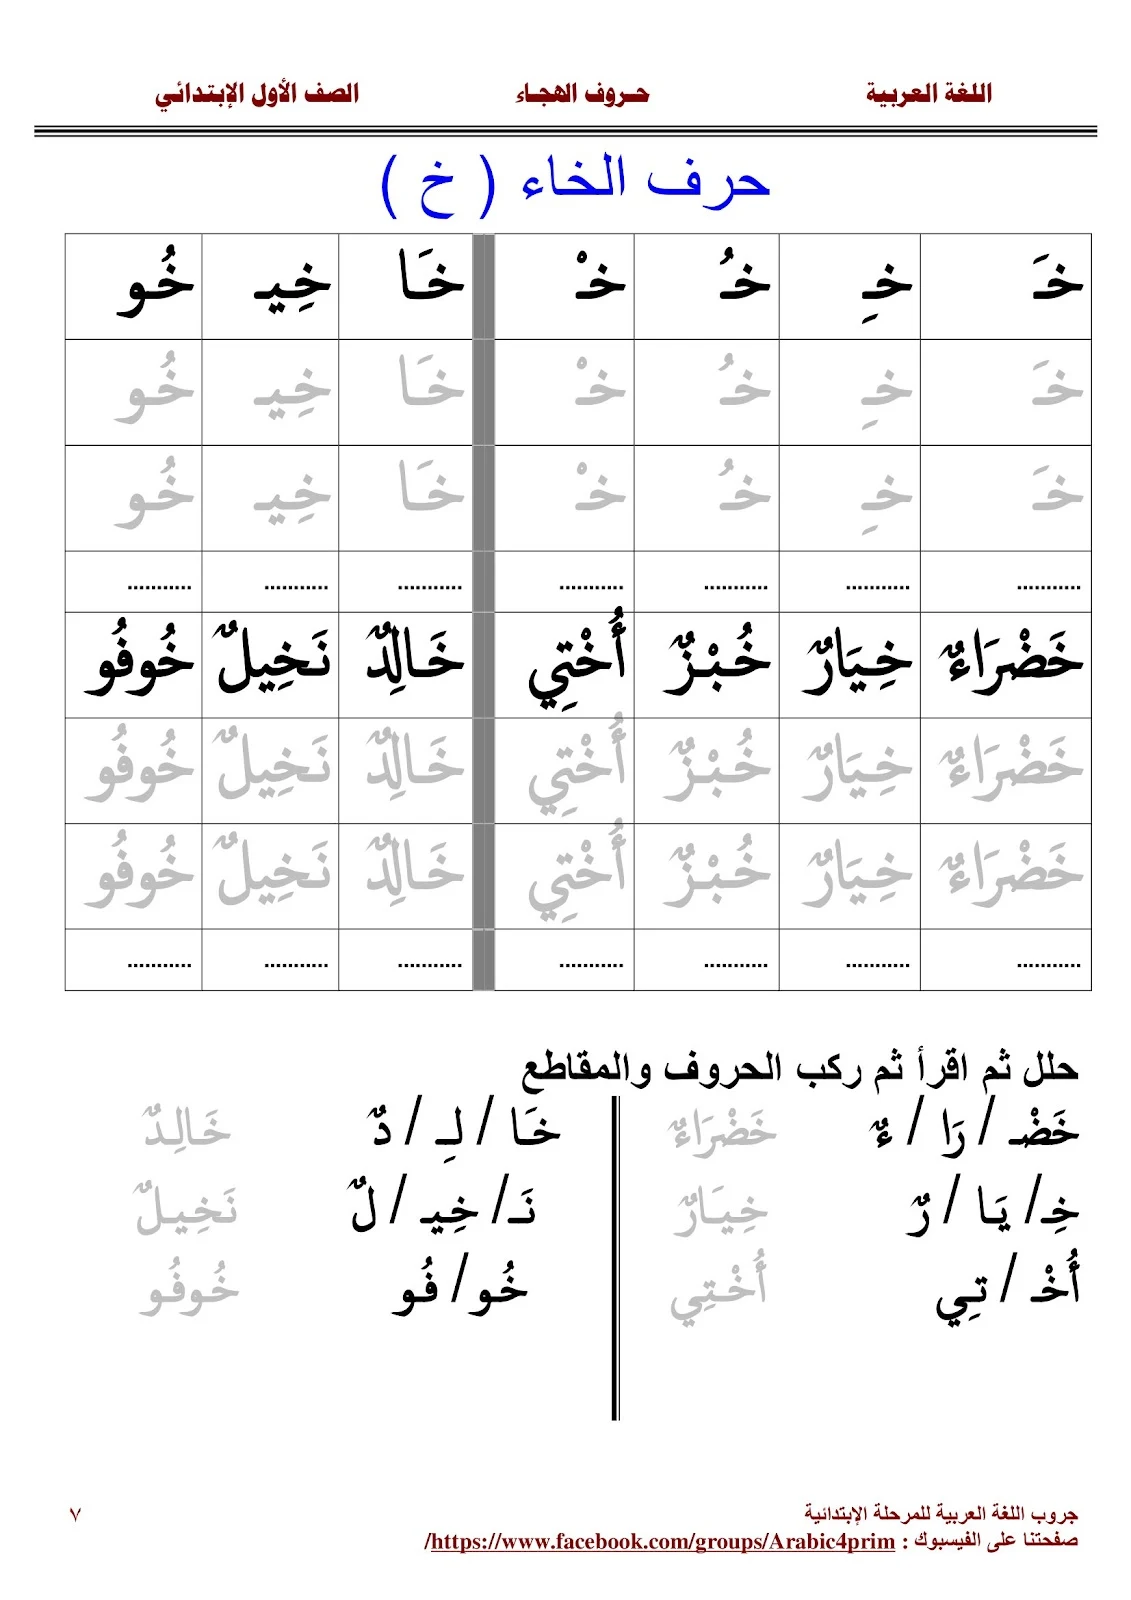 اللغة العربية حروف الهجاء الصف الأول الإبتدائي
حرف الخاء ( خ )
خَـ خِـ خُـ خْـ خَـا خِيـ خُـو
خَـ خِـ خُـ خْـ خَـا خِيـ خُـو
خَـ خِـ خُـ خْـ خَـا خِيـ خُـو
........... ........... ........... ........... ........... ........... ...........
خَضْرَاءٌ خِـيَارٌ خُـبْـزٌ أُخْتِي خَـالِدٌ نَـخِيلٌ خُوفُو
خَضْرَاءٌ خِـيَارٌ خُـبْـزٌ أُخْتِي خَـالِدٌ نَـخِيلٌ خُوفُو
خَضْرَاءٌ خِـيَارٌ خُـبْـزٌ أُخْتِي خَـالِدٌ نَـخِيلٌ خُوفُو
........... ........... ........... ........... ........... ........... ...........
حلل ثم اقرأ ثم ركب الحروف والمقاطع
خَضْـ / رَا / ءٌ خَضْرَاءٌ خَـا / لِـ / دٌ خَـالِـدٌ
خِـ/ يَـا / رٌ خِـيَـارٌ نَـ/ خِيـ / لٌ نَـخِيـلٌ
أُخْـ / تِـي أُخْـتِـي خُـو/ فُـو خُـوفُـو
جروب اللغة العربية للمرحلة الإبتدائية ٧
صفحتنا على الفيسبوك : https://www.facebook.com/groups/Arabic4prim/